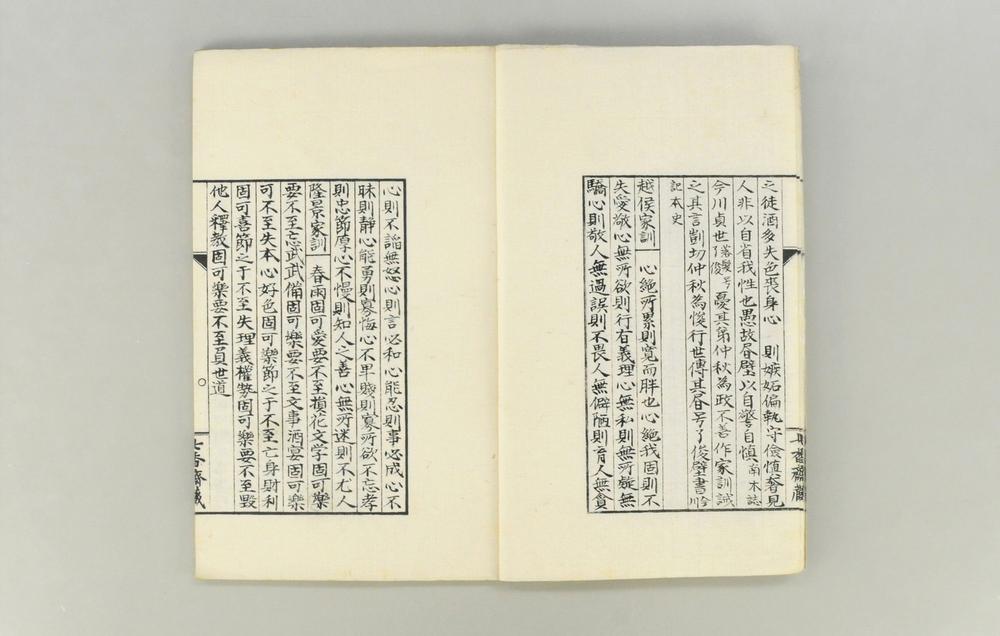 之徒酒多失色喪身心　則嫉妬偏執守儉慎奢見
人非以自省我性也愚故眉壁以自警自慎南木誌
今川貞世落髮号了俊憂其弟仲秋為政不善作家訓誡
之其言剴切仲秋為悛行世傳其眉号了俊壁書今川
記本史
越侯家訓　心絶所累則寬而胖也心絶我固則不
失愛敬心無所欲則行有義理心無私則無所疑無
驕心則敬人無過誤則不畏人無僻陋則育人無貪
心則不諂無怒心則言必和心能忍則事必成心不
昧則靜心能勇則寡悔心不卑賤則寡所欲不忘孝
則忠節厚心不慢則知人之善心無所迷則不尤人
隆景家訓　春雨固可愛要不至損花文学固可樂
要不至忘武武備固可樂要不至文事酒宴固可樂
可不至失本心好色固可樂節之于不至亡身財利
固可喜節之于不至失理義權勢固可樂要不至毀
他人釋教固可樂要不至負世道
七香齋藏